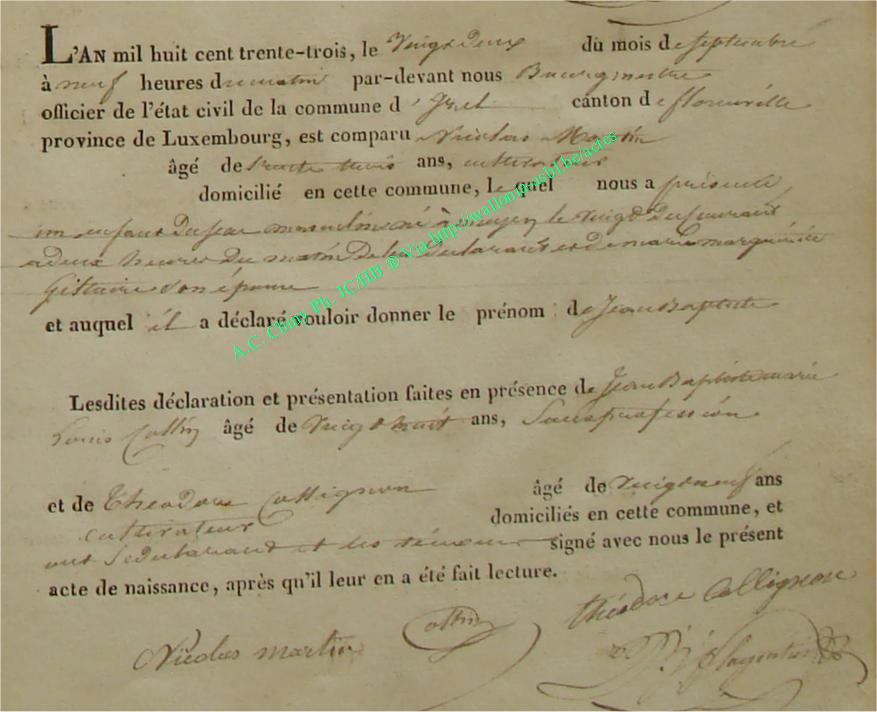 L'AN mil huit cent trente-trois, le Vingt deux du mois de septembre
à neuf heures du matin par-devant nous Bourgmestre
officier de l'état civil de la commune d'Izel canton de florenville
province de Luxembourg, est comparu Nicolas Martin
âgé de trente trois ans, cultivateur
domicilié en cette commune, le quel nous a présenté
un enfant du sexe masculin né à moyen le vingt du courant
a deux heures du matin de lui déclarant et de marie marguerite
son épouse
et auquel il a déclaré vouloir donner le prénom de Jean Baptiste
Lesdites déclaration et présentation faites en présence de Jean Baptiste marie
Louis Collin âgé de vingt huit ans, Sans profession
et de Théodore Collignon âgé de vingt neuf ans
cultivateur domiciliés en cette commune, et
ont le déclarant et les témoins signé avec nous le présent
acte de naissance, après qu'il leur en a été fait lecture.
théodore Collignon
Nicolas martin Collin
A.C. Chiny Ph. JC/HB @ Via http://wallonia.asbl.be/actes